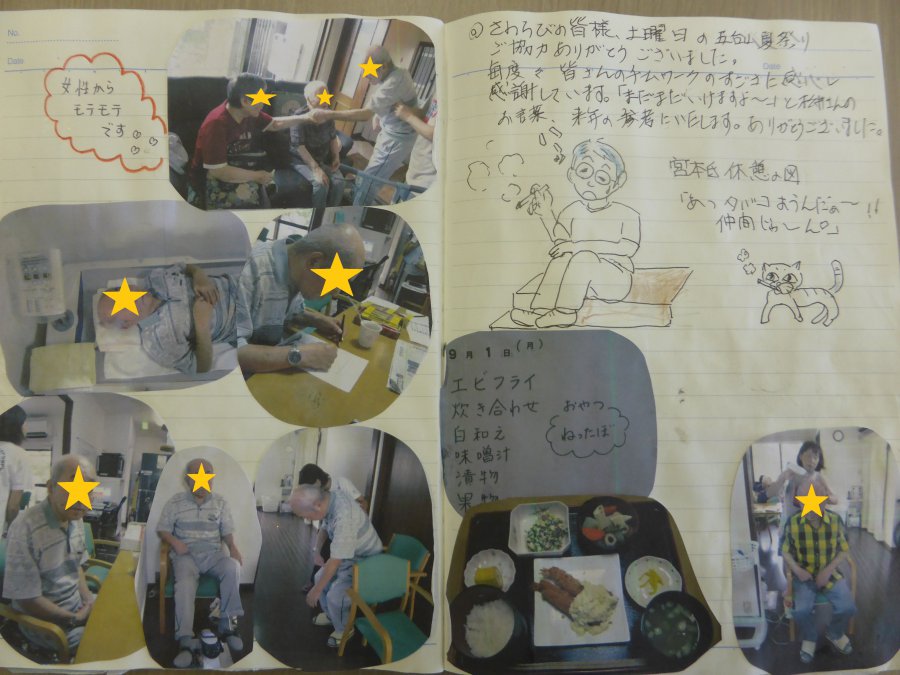 No.
Date
女性から
モテモテ
です♡♡
@ さわらびの皆様、土曜日の五台山夏祭り
ご協力ありがとうございました。
Date
毎度々 皆さんのチームワークのすごさに感心し
感謝しています。「まだまだいけますよ〜」と
お言葉、来年の参考にいたします。ありがとうございました。
宮本 休憩の図
「あっ タバコ おうんだぁ〜!!
仲間じゃ〜ん。」
9月1日(月)
エビフライ
炊き合わせ
白和え
味噌汁
漬物
果物
おやつ
ねったぼ